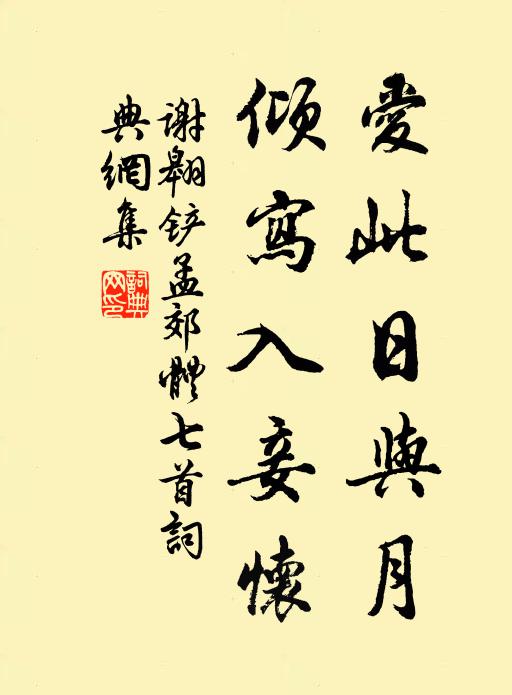 愛此日與月
傾寫入妾懷
謝翱铲孟郊體七首詞
典網集
詞典網印